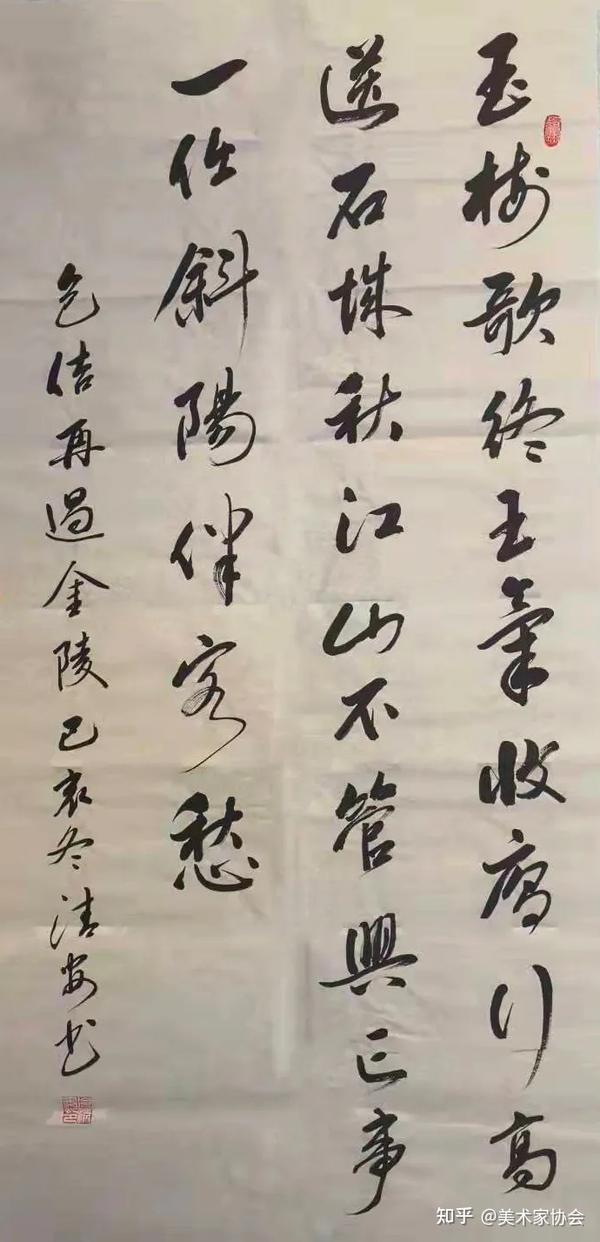 玉树歌终王氣收雁行高
送石城秋江山不管興亡事
一任斜陽伴客愁
包佶再過金陵己亥冬清安书
知乎 @美术家协会